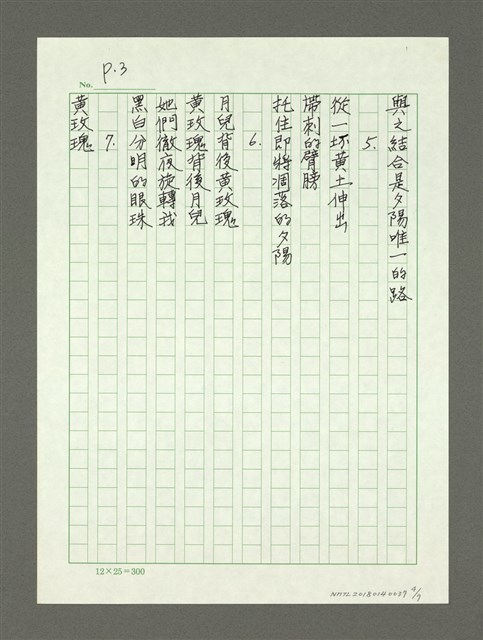 P.3
No.
與之結合是夕陽唯一的路
5.
從一坏黃土伸出
帶刺的臂膀
托住即將凋落的夕陽
6.
月兒背後黃玫瑰
黃玫瑰背後月兒
她們徹夜旋轉我
黑白分明的眼珠
7.
黃玫瑰
12×25=300
NMTL20180140037 4/7